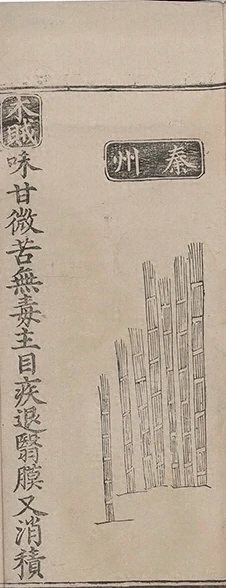 秦州
木賊
味甘微苦無毒主目疾退翳膜又消積